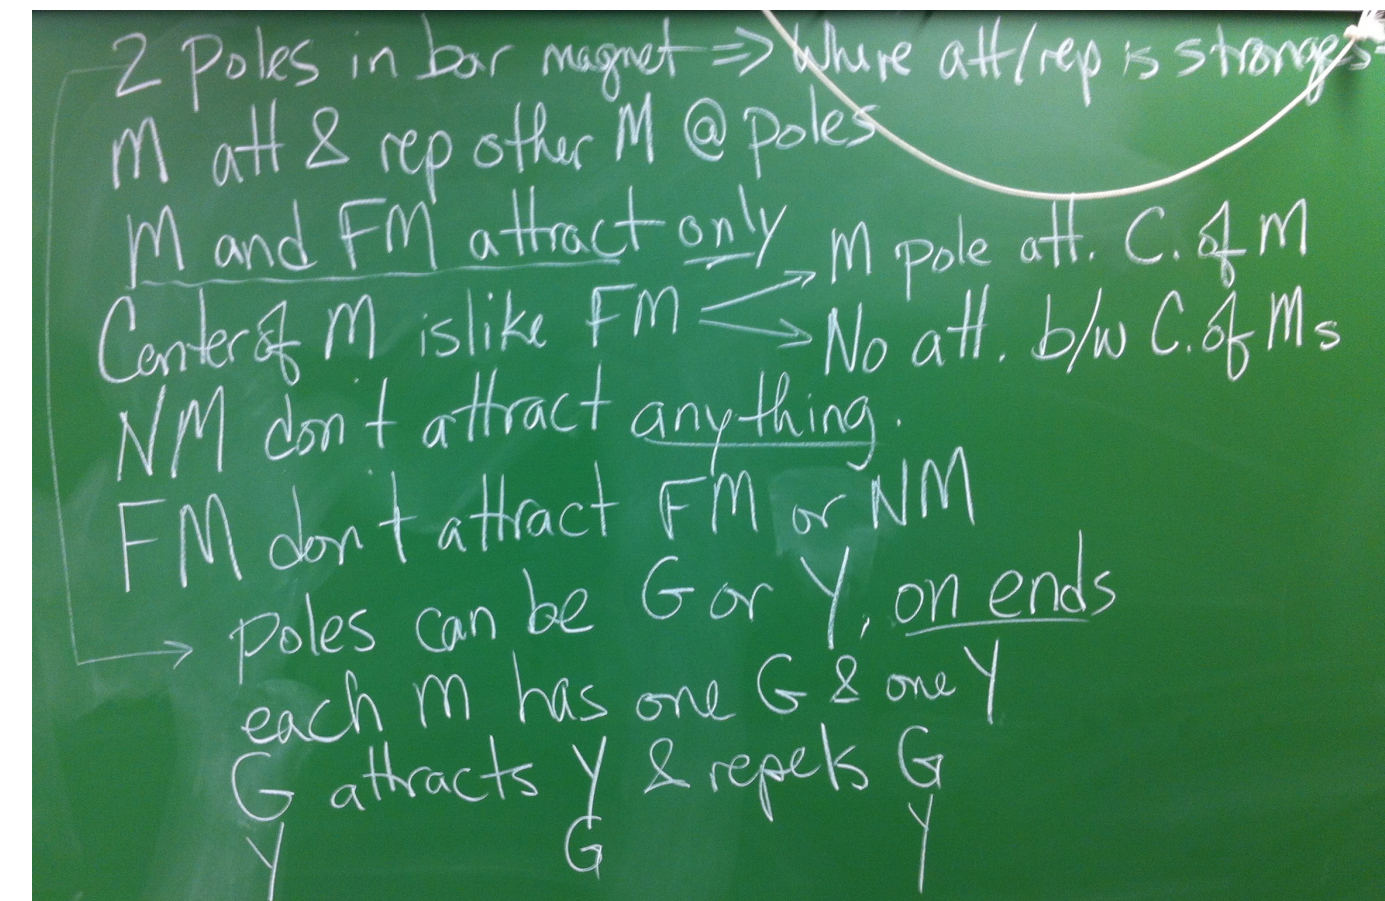 2 Poles in bar magnet => Where att/rep is stronges
M att & rep other M @ poles
M and FM attract only
Center of M is like FM
M pole att. C. of M
No att. b/w C. of Ms
NM don't attract anything.
FM don't attract FM or NM
Poles can be G or Y, on ends
each M has one G & one Y
G attracts Y & repels G
Y G Y